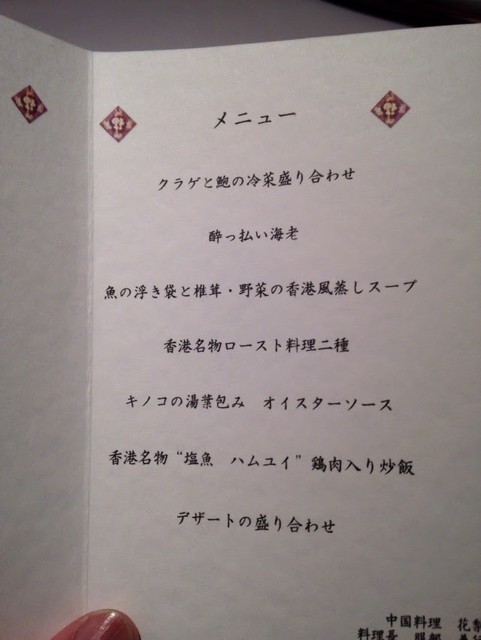 メニュー
クラゲと鮑の冷菜盛り合わせ
酔っ払い海老
魚の浮き袋と椎茸・野菜の香港風蒸しスープ
香港名物ロースト料理二種
キノコの湯葉包み　オイスターソース
香港名物“塩魚　ハムユイ”鶏肉入り炒飯
デザートの盛り合わせ
中国料理　花梨
料理長